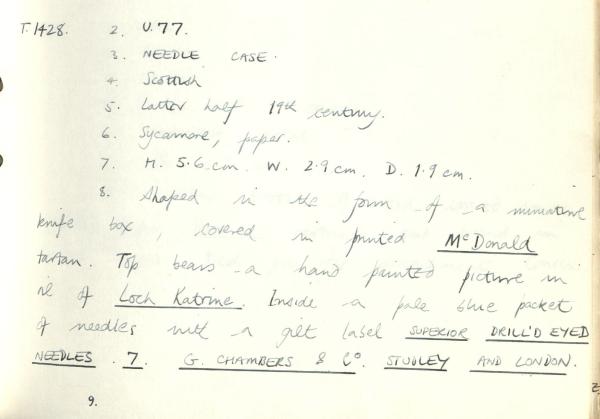 T.1428. 2. U.77.
3. NEEDLE CASE.
4. Scottish
5. Latter half 19th century.
6. Sycamore, paper.
7. H. 5.6 cm. W. 2.9 cm. D. 1.9 cm.
8. Shaped in the form of a miniature
knife box, covered in printed McDonald
tartan. Top bears a hand painted picture in
oil of Loch Katrine. Inside a pale blue packet
of needles with a gilt label SUPERIOR DRILL'D EYED
NEEDLES. 7. G. CHAMBERS & Co. STUDLEY AND LONDON.
9.